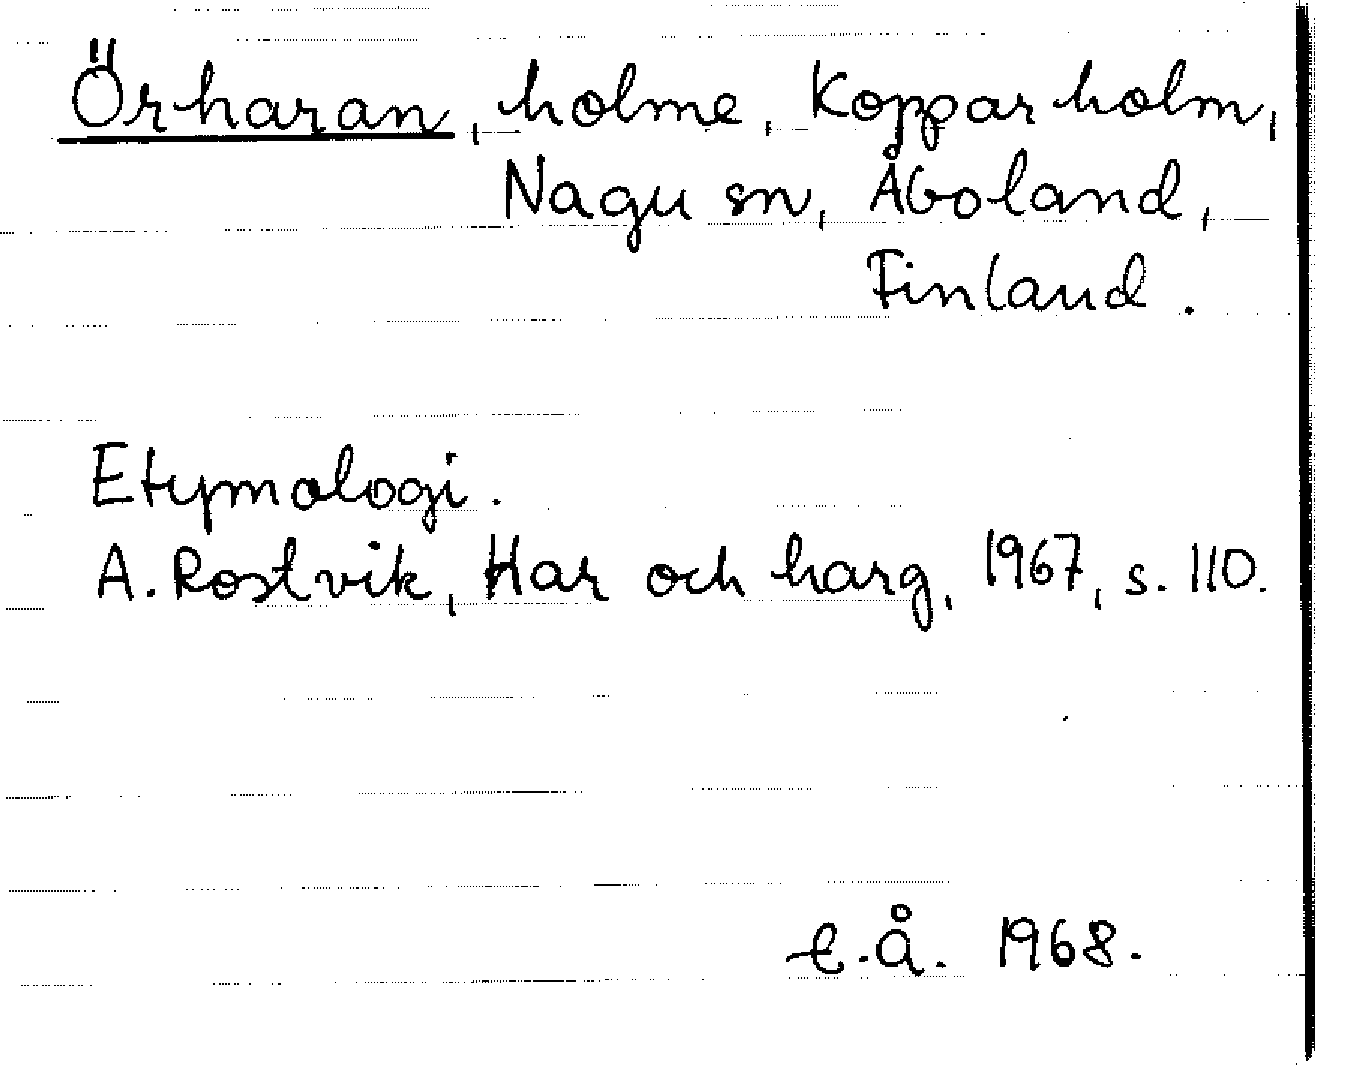 Örharan, holme, Kopparholm,
Nagu sn, Åboland,
Finland.
Etymologi.
A. Rostvik, Har och harg, 1967, s. 110.
E.Å. 1968.